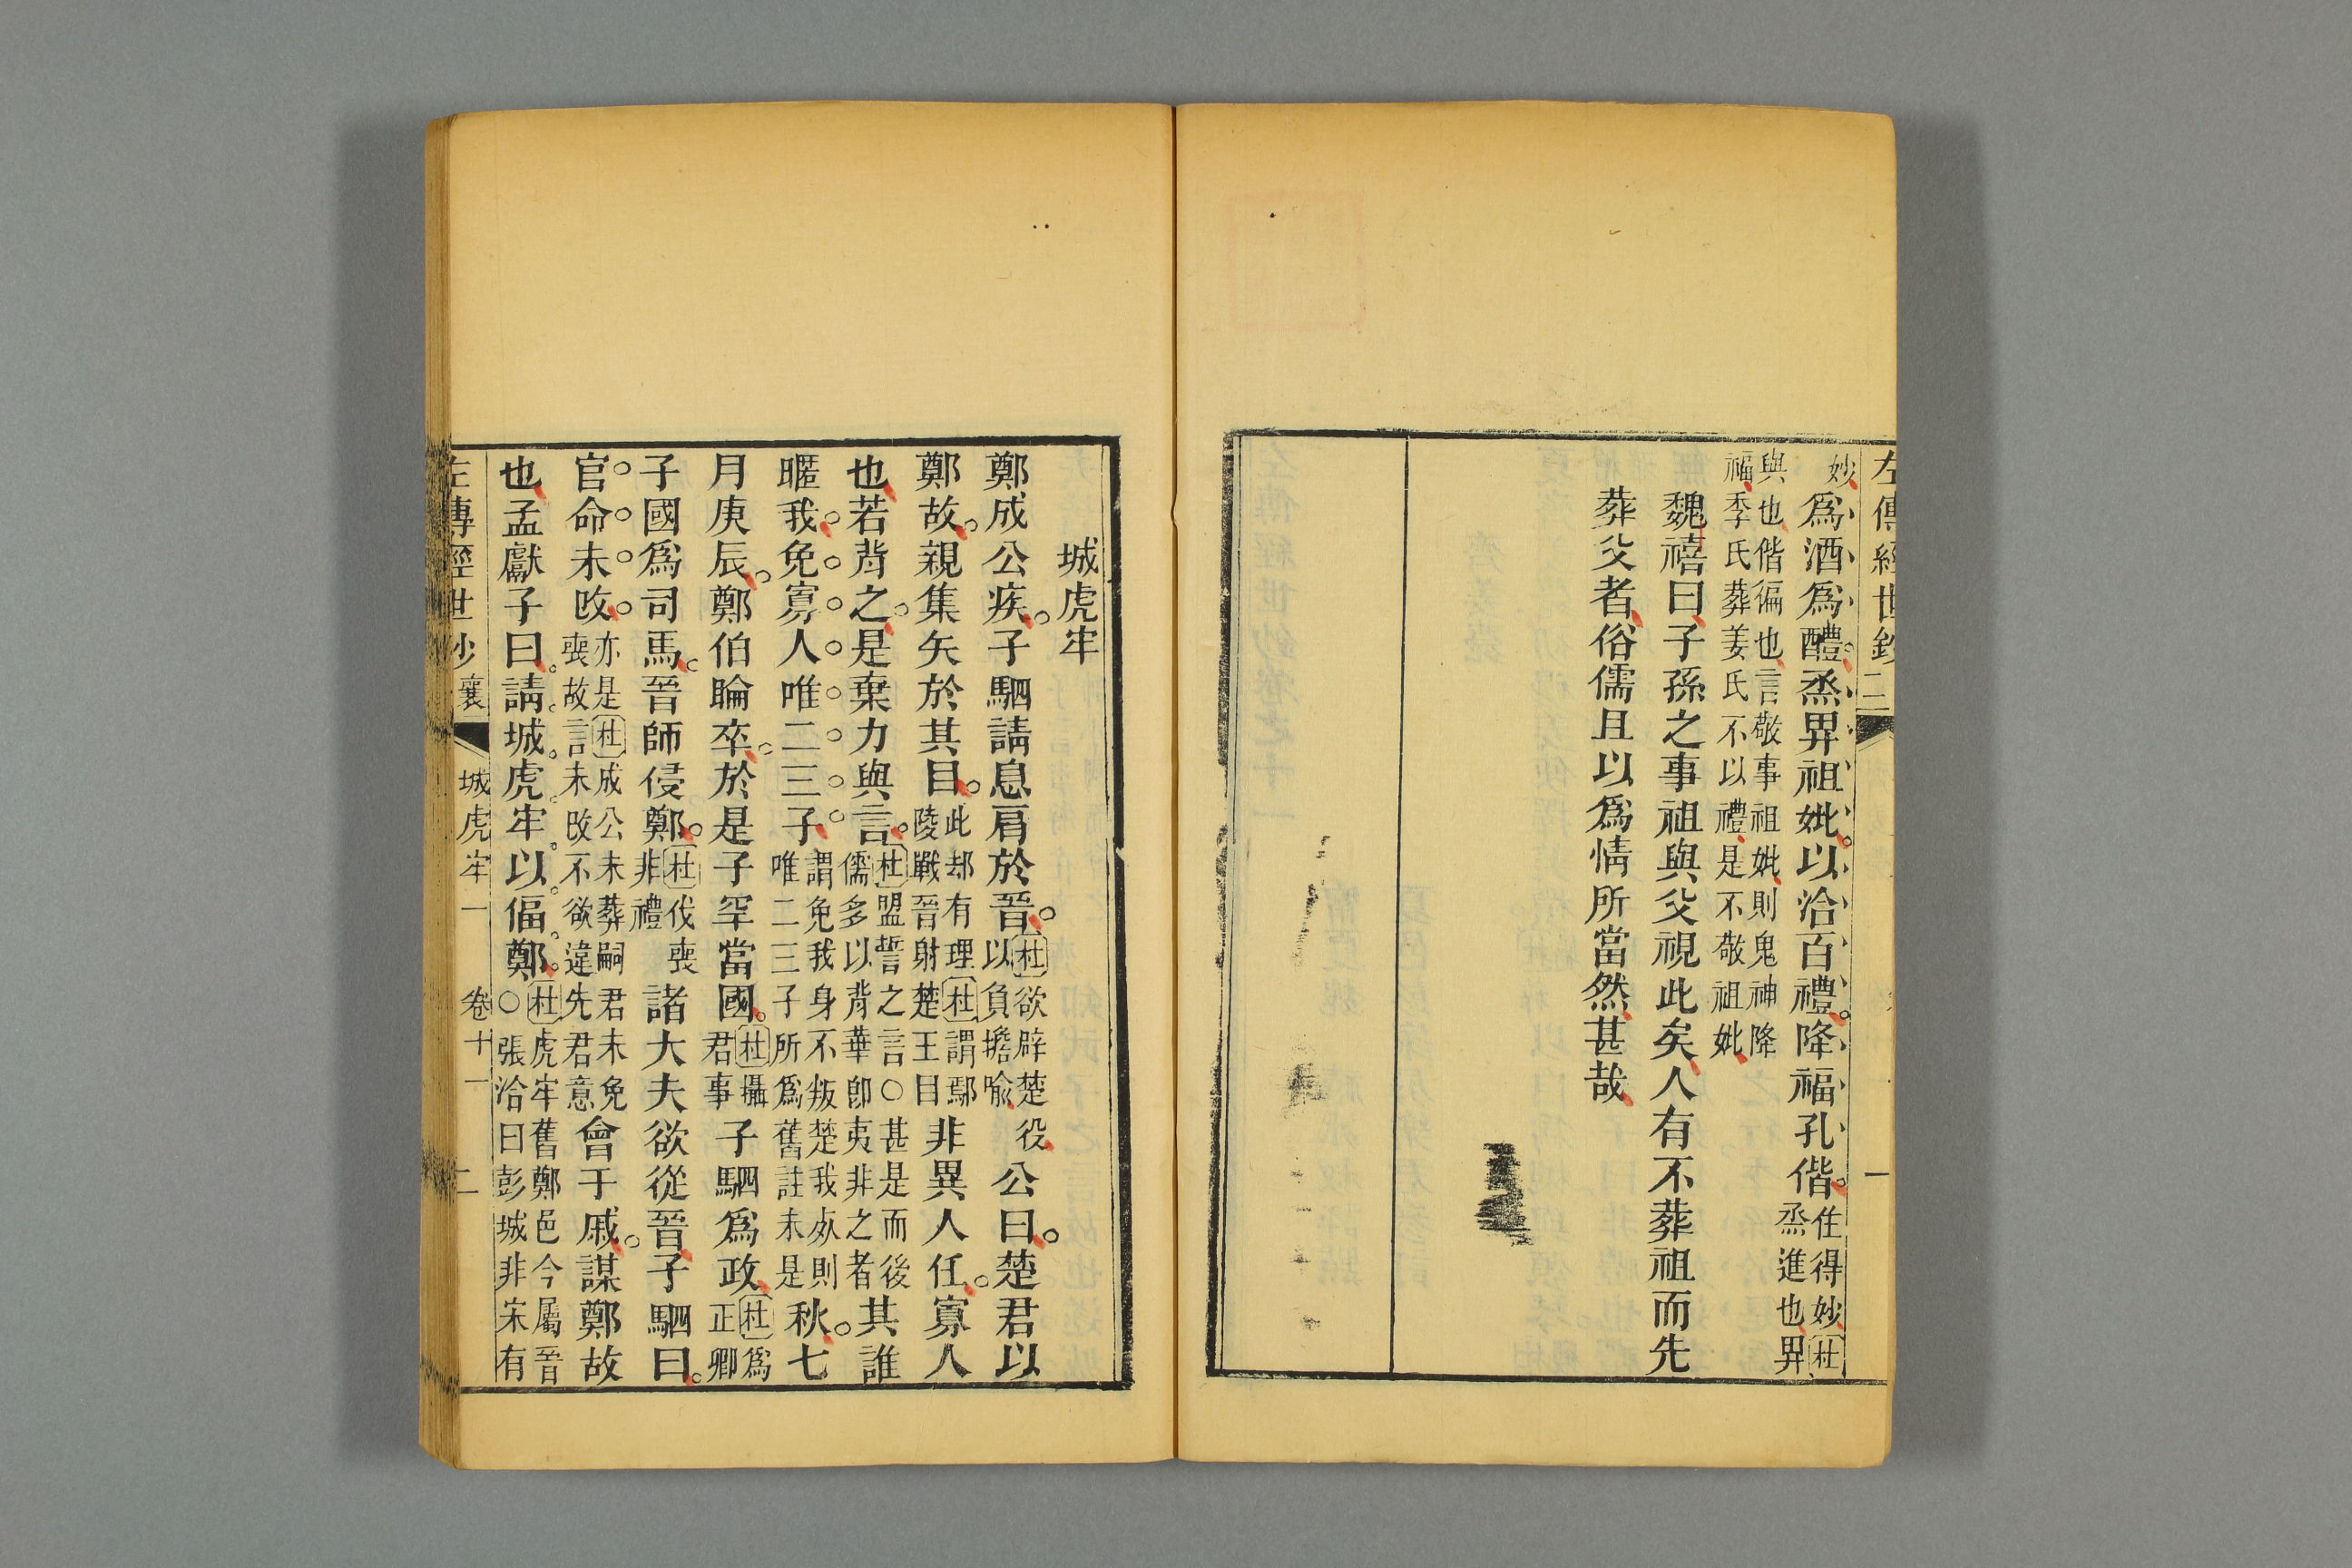 左傳經世鈔
二
一
妙為酒為醴烝畀祖妣以洽百禮降福孔偕住得妙杜烝進也畀
與也偕徧也言敬事祖妣則鬼神降
福季氏葬姜氏不以禮是不敬祖妣
魏禧曰子孫之事祖與父視此矣人有不葬祖而先
葬父者俗儒且以為情所當然甚哉
城虎牢
鄭成公疾子駟請息肩於晉杜欲辟楚役以負擔喻公曰楚君以
鄭故親集矢於其目此却有理杜謂鄢陵戰晉射楚王目非異人任寡人
也若背之是棄力與言杜盟誓之言○甚是而後儒多以背華卽夷非之者其誰
暱我免寡人唯二三子謂免我身不叛楚我則唯二三子所爲舊註未是秋七
月庚辰鄭伯睔卒於是子罕當國杜攝君事子駟爲政杜爲正卿
子國爲司馬晉師侵鄭杜伐喪非禮諸大夫欲從晉子駟曰
官命未改亦是杜成公未葬嗣君未免喪故言未改不欲違先君意會于戚謀鄭故
也孟獻子曰請城虎牢以偪鄭杜虎牢舊鄭邑今屬晉○張洽曰彭城非宋有
左傳經世鈔襄 城虎牢一 卷十一 二